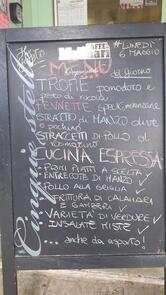 CAFFE
Molinari
#LUNEDÌ
6 MAGGIO
MENU
del GIORNO
TROFIE pomodoro e
pesto di rucola
PENNETTE
STRACCETTI di MANZO olive
e pachino
STRACCETTI di POLLO al
rosmarino
CUCINA ESPRESSA
PRIMI PIATTI A SCELTA
ENTRECOTE DI MANZO ✓
POLLO ALLA GRIGLIA
FRITTURA di CALAMARI
E GAMBERI ✓
VARIETÀ DI VERDURE ✓
INSALATE MISTE ✓
... anche da asporto!
Cinque